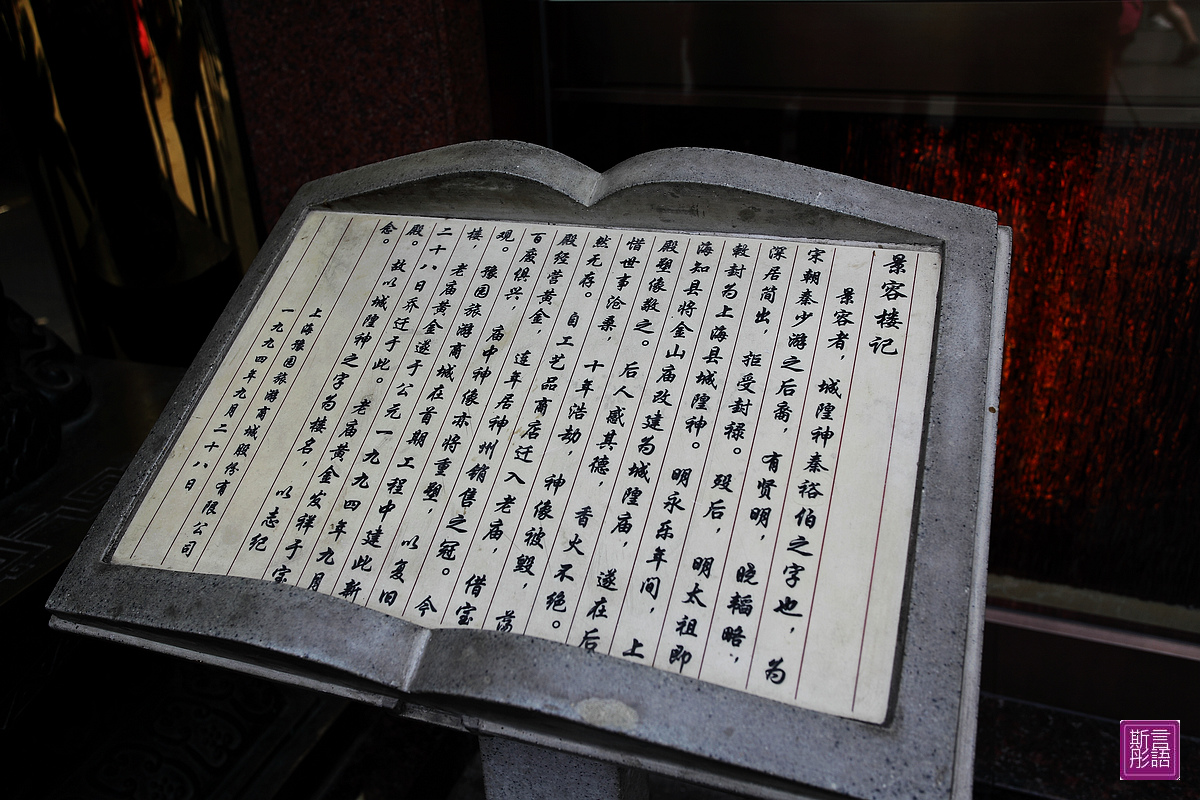 景容楼记
景容者，城隍神秦裕伯之字也，为
宋朝秦少游之后裔，有贤明，晓韬略，
深居简出，拒受封禄。殁后，明太祖即
敕封为上海县城隍神。明永乐年间，上
海知县将金山庙改建为城隍庙，遂在后
殿塑像敬之。后人感其德，香火不绝。
惜世事沧桑，十年浩劫，神像被毁，荡
然无存。自工艺品商店迁入老庙，借宝
殿经营黄金，连年居神州销售之冠。今
百废俱兴，庙中神像亦将重塑，以复旧
观。豫园旅游商城在首期工程中建此新
楼，老庙黄金遂于公元一九九四年九月
二十八日乔迁于此。老庙黄金发祥于宝
殿。故以城隍神之字为楼名，以志纪
念。
上海豫园旅游商城股份有限公司
一九九四年九月二十八日
斯彤言語